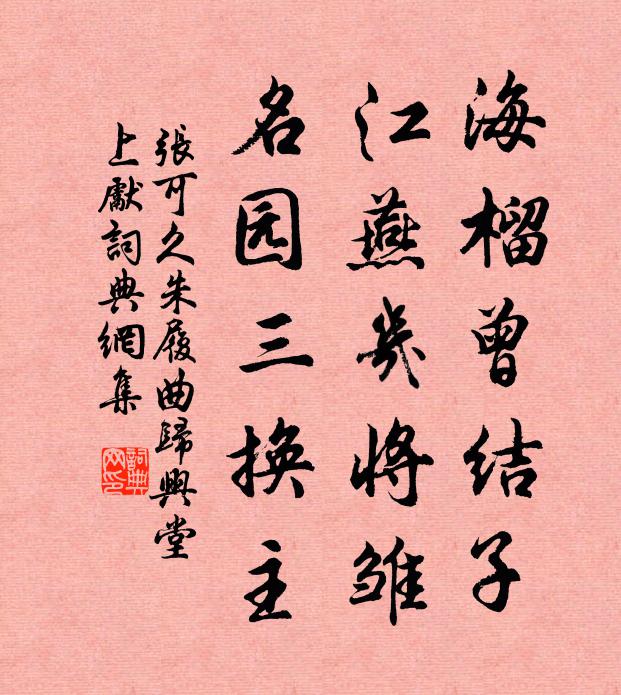 海榴曾结子
江燕幾将雏
名园三换主
張可久朱履曲歸興堂
上獻詞典網集
詞典
网印